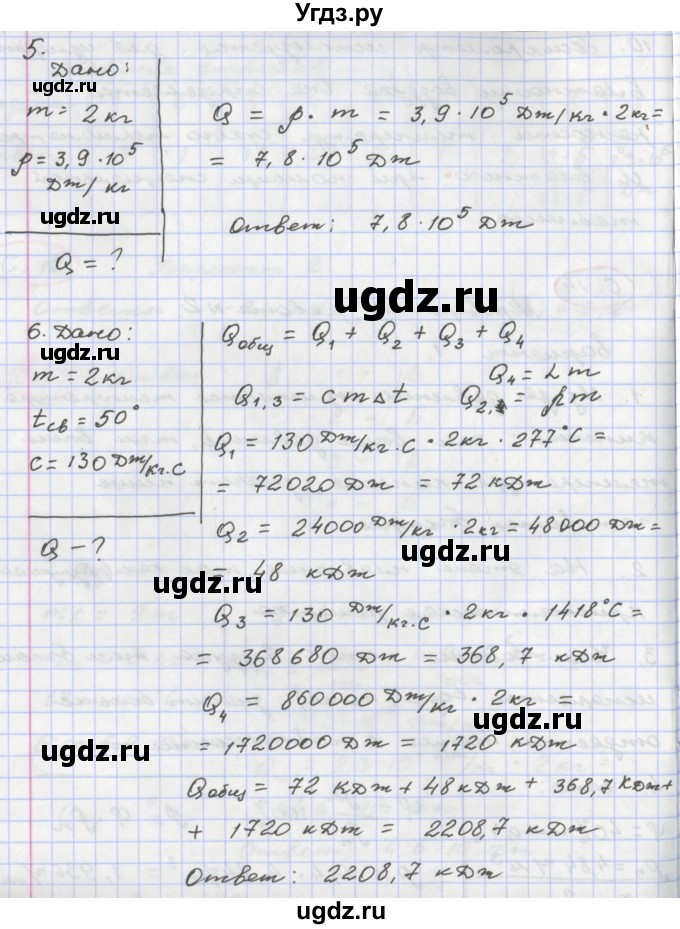 Угдз.ру
5.
Дано:
ugdz.ru
m = 2 кг
ρ = 3,9 · 10⁵
Дж/кг
ugdz.ru
Q = ?
Q = ρ · m = 3,9 · 10⁵ Дж/кг · 2кг =
= 7,8 · 10⁵ Дж
ugdz.ru
Ответ: 7,8 · 10⁵ Дж
ugdz.ru
6. Дано:
ugdz.ru
m = 2кг
t св = 50°
c = 130 Дж/кг.С
Q – ?
Q общ = Q₁ + Q₂ + Q₃ + Q₄
Q₄ = Lm
Q₁,₃ = cmΔt Q₂, = ρm
Q₁ = 130 Дж/кг.С · 2кг · 277°С =
= 72020 Дж = 72 кДж
Q₂ = 24000 Дж/кг · 2кг = 48000 Дж =
ugdz.ru
= 48 кДж
ugdz.ru
Q₃ = 130 Дж/кг.С · 2кг · 1418°С =
= 368680 Дж = 368,7 кДж
Q₄ = 860000 Дж/кг · 2кг =
ugdz.ru
= 1720000 Дж = 1720 кДж
ugdz.ru
Q общ = 72 кДж + 48кДж + 368,7 кДж +
+ 1720 кДж = 2208,7 кДж
ugdz.ru
Ответ: 2208,7 кДж
ugdz.ru